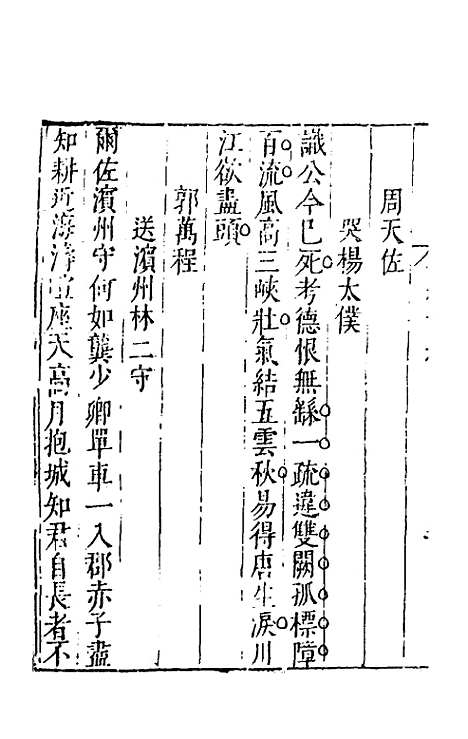 周天佐
哭楊太僕
識公今已死考德恨無繇一疏違雙闕孤標障
百流風高三峽壯氣結五雲秋易得唐生淚川
江欲盡頭
郭萬程
送濱州林二守
爾佐濱州守何如龔少卿單車一入郡赤子盡
知耕近海濤宣座天高月抱城知君自長者不